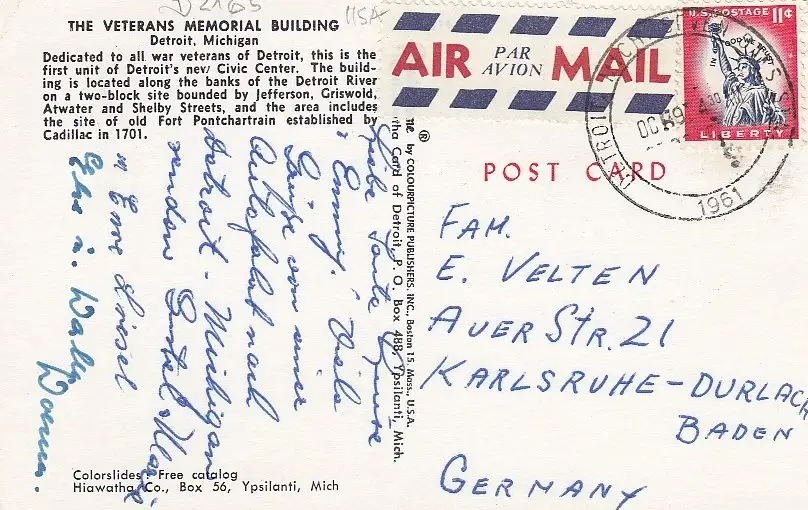 D2165
USA
THE VETERANS MEMORIAL BUILDING
Detroit, Michigan
Dedicated to all war veterans of Detroit, this is the
first unit of Detroit's new Civic Center. The build-
ing is located along the banks of the Detroit River
on a two-block site bounded by Jefferson, Griswold,
Atwater and Shelby Streets, and the area includes
the site of old Fort Pontchartrain established by
Cadillac in 1701.
Liebe Tante
Emmy! Viele
Grüsse von einer
Autofahrt nach
Detroit - Michigan
senden
Colorslides: Free catalog
Hiawatha Co., Box 56, Ypsilanti, Mich
by COLOURPICTURE PUBLISHERS, INC., Boston 15, Mass., U.S.A.
Card of Detroit, P. O. Box 488, Ypsilanti, Mich.
®
AIR PAR AVION MAIL
U.S. POSTAGE 11¢
IN GOD WE TRUST
LIBERTY
DETROIT
1961
POST CARD
FAM.
E. VELTEN
AUER STR. 21
KARLSRUHE-DURLACH
BADEN
GERMANY